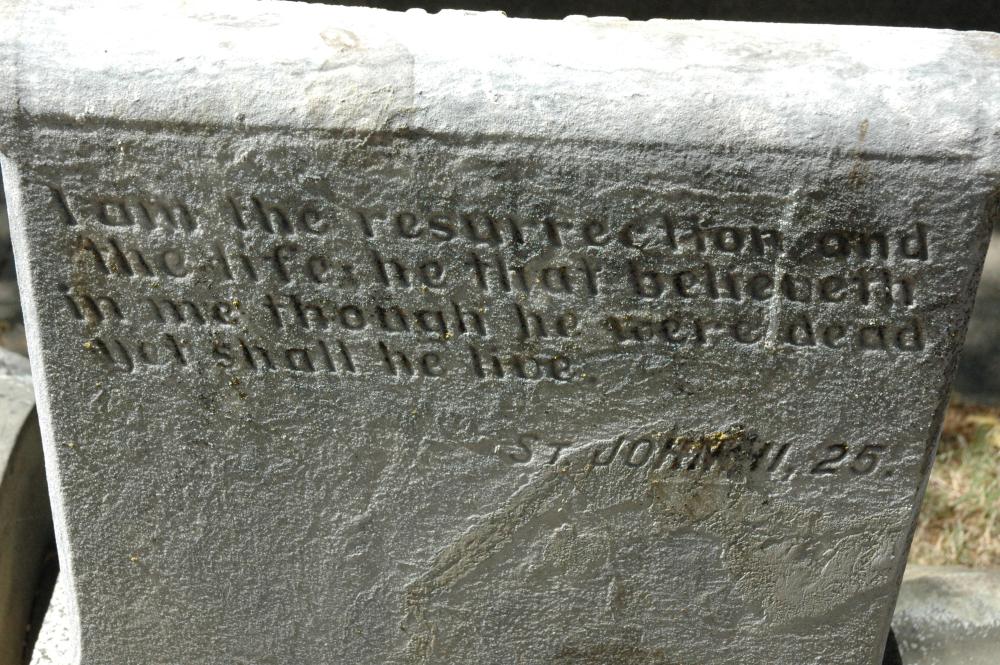 I am the resurrection and
the life: he that believeth
in me though he were dead
yet shall he live.
ST. JOHN 11, 25.